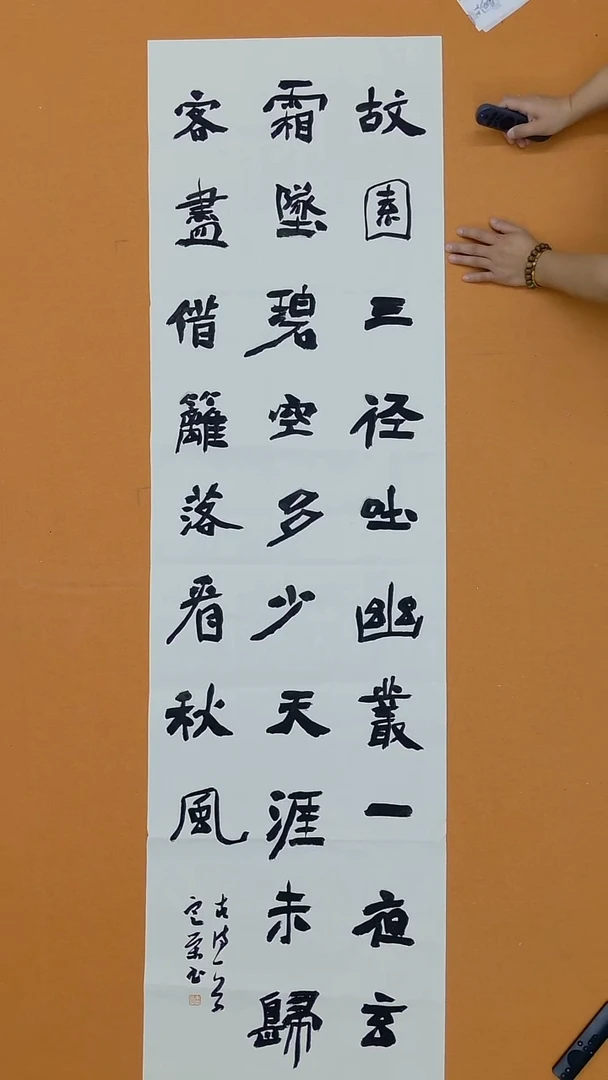 故園三径吐幽叢一夜玄
霜墜碧空多少天涯未歸
客盡借籬落看秋風
古诗一首